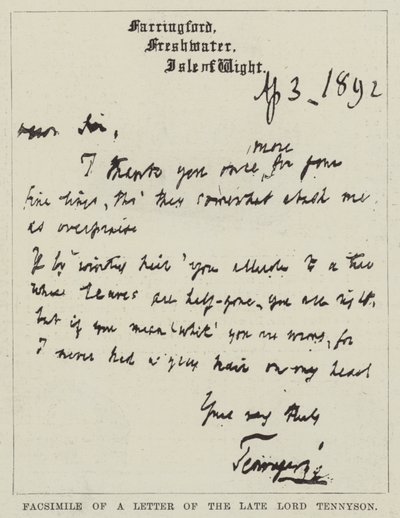 Farringford,
Freshwater,
Isle of Wight.
Ap 3 – 1892
Dear Sir,
I thank you once more for your
fine lines, tho' they somewhat abash me
as overpraise
If by 'wintry hair' you allude to a tree
whose leaves are half-gone, you are right,
but if you mean 'white' you are wrong, for
I never had a grey hair on my head
Yours very truly
Tennyson
FACSIMILE OF A LETTER OF THE LATE LORD TENNYSON.